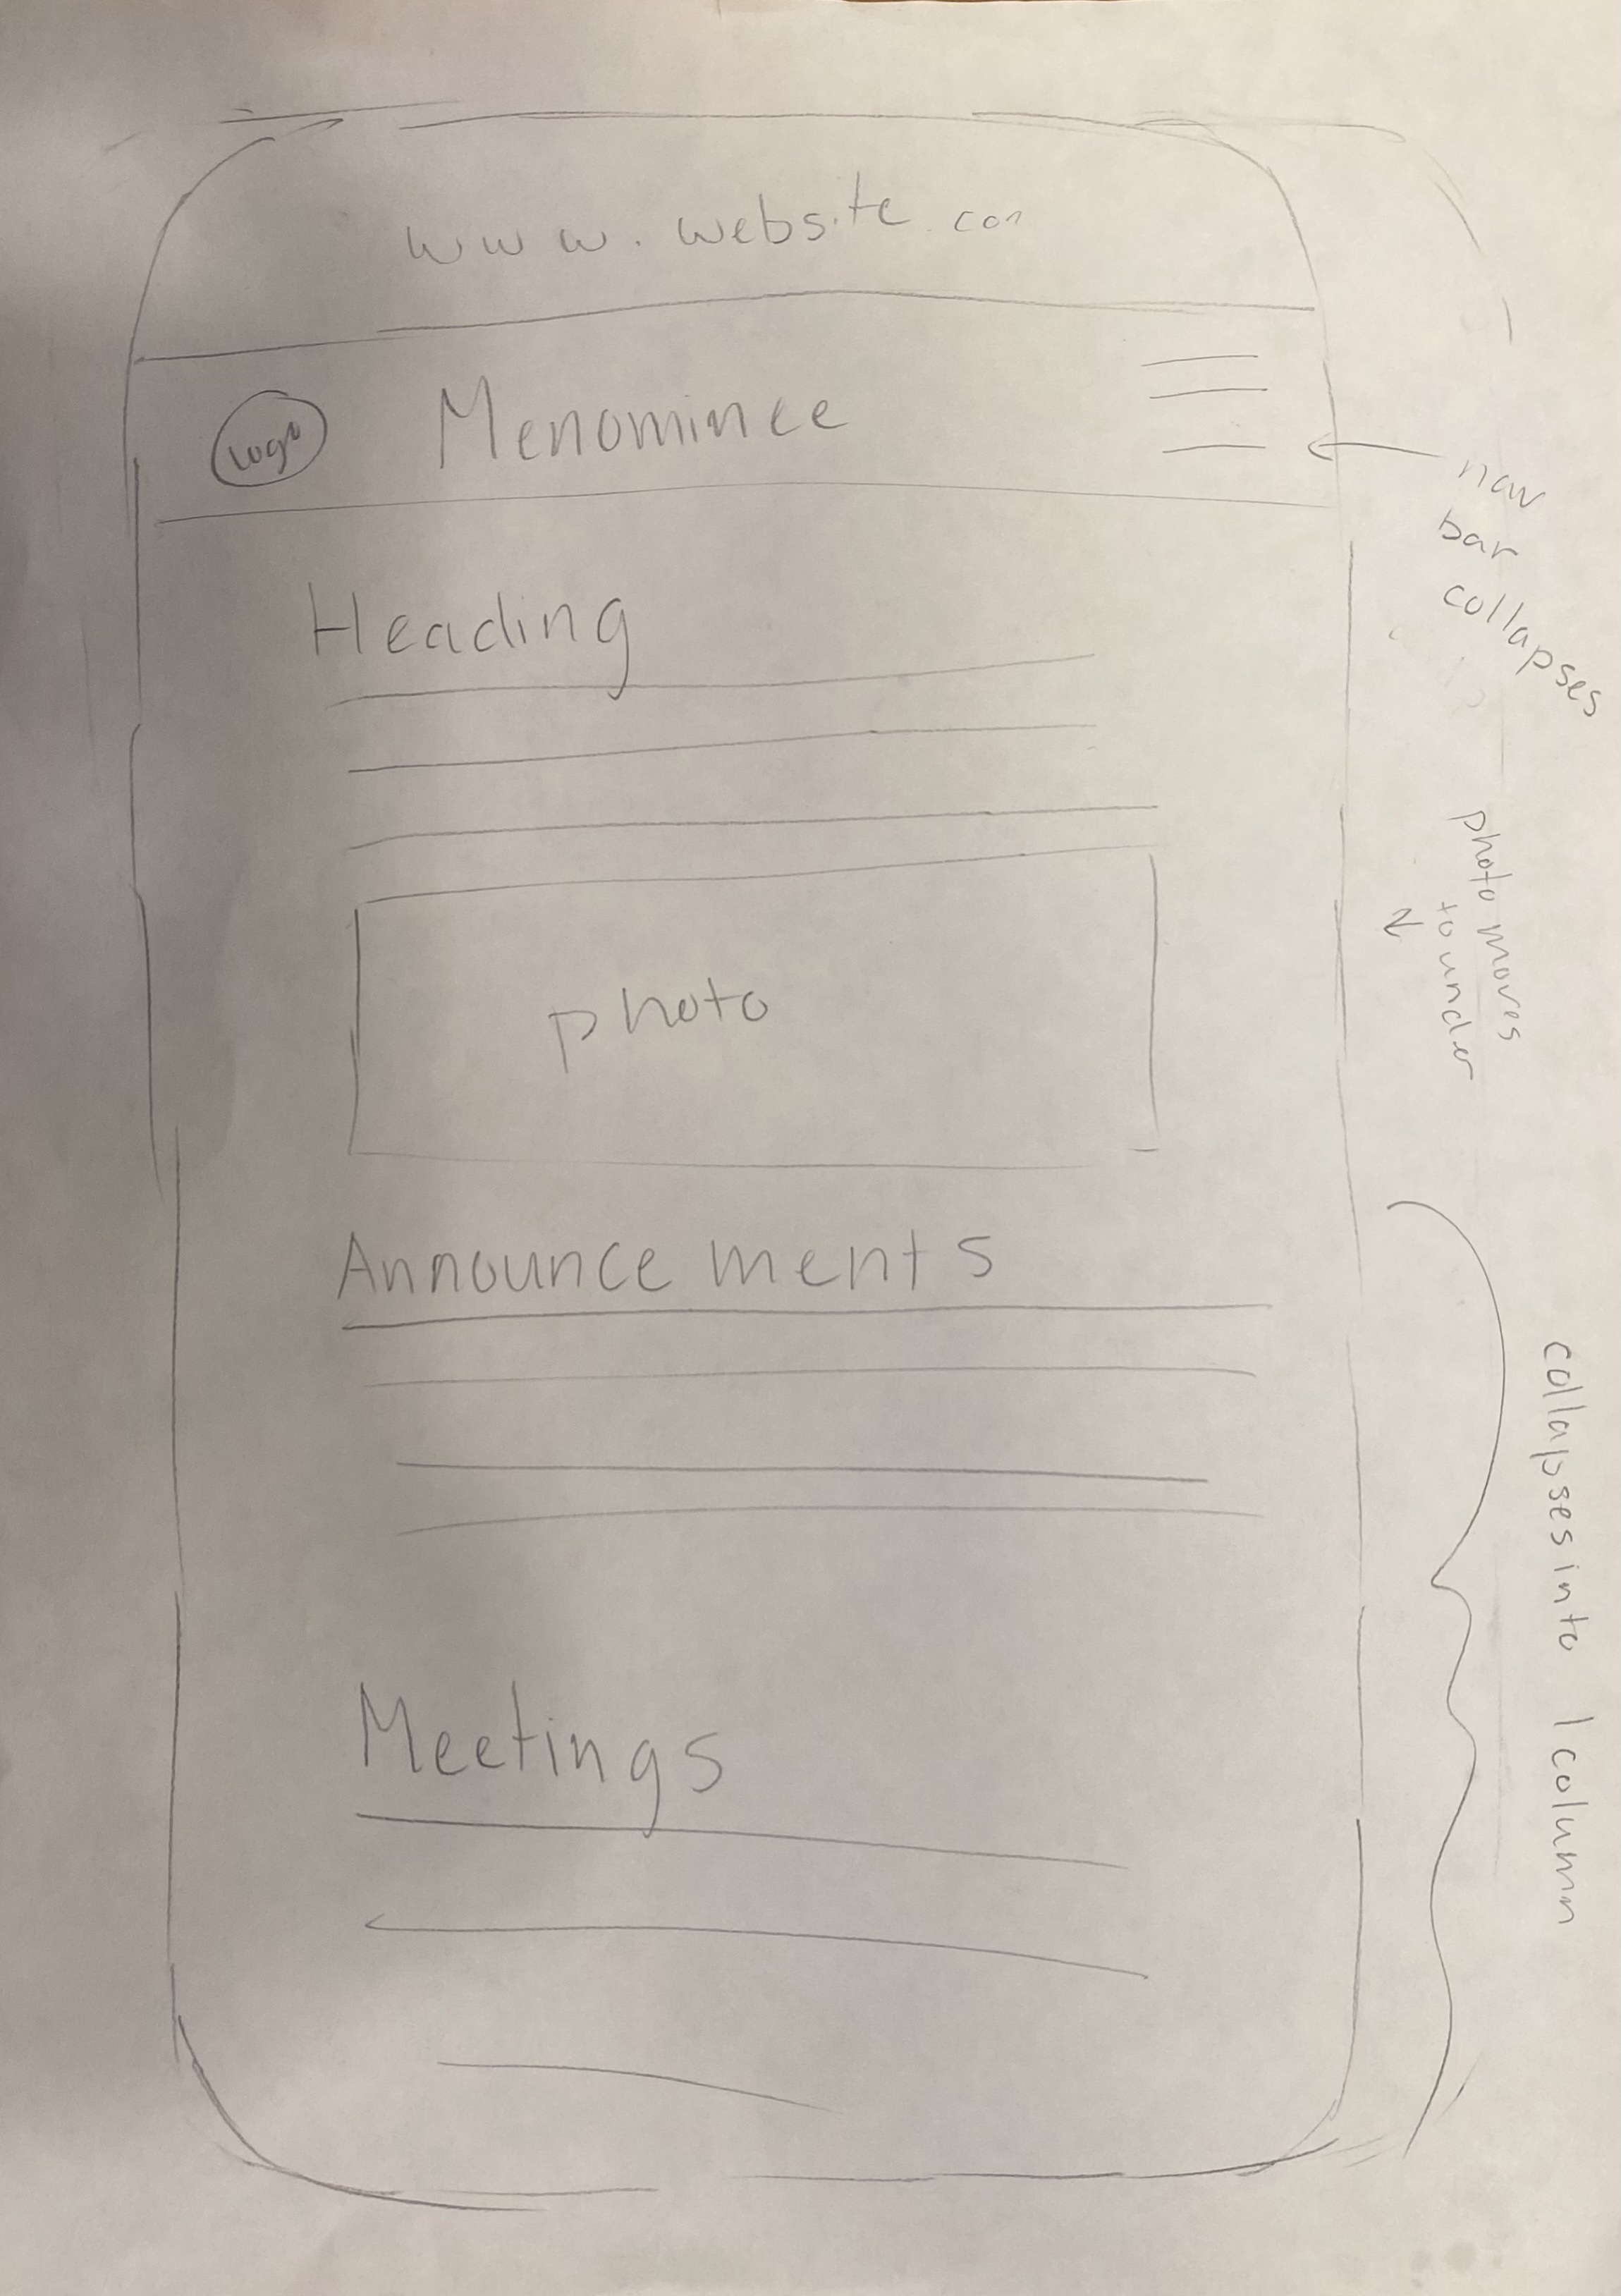 www.website.com
Logo
Menominee
nav
bar
collapses
Heading
photo moves
to under
photo
Announcements
collapses into 1 column
Meetings